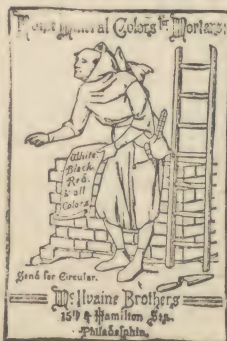 Mineral Colors for Mortars:
White
Black
Red.
& all
Colors.
Send for Circular.
McIlvaine Brothers
15th & Hamilton Sts.
Philadelphia.